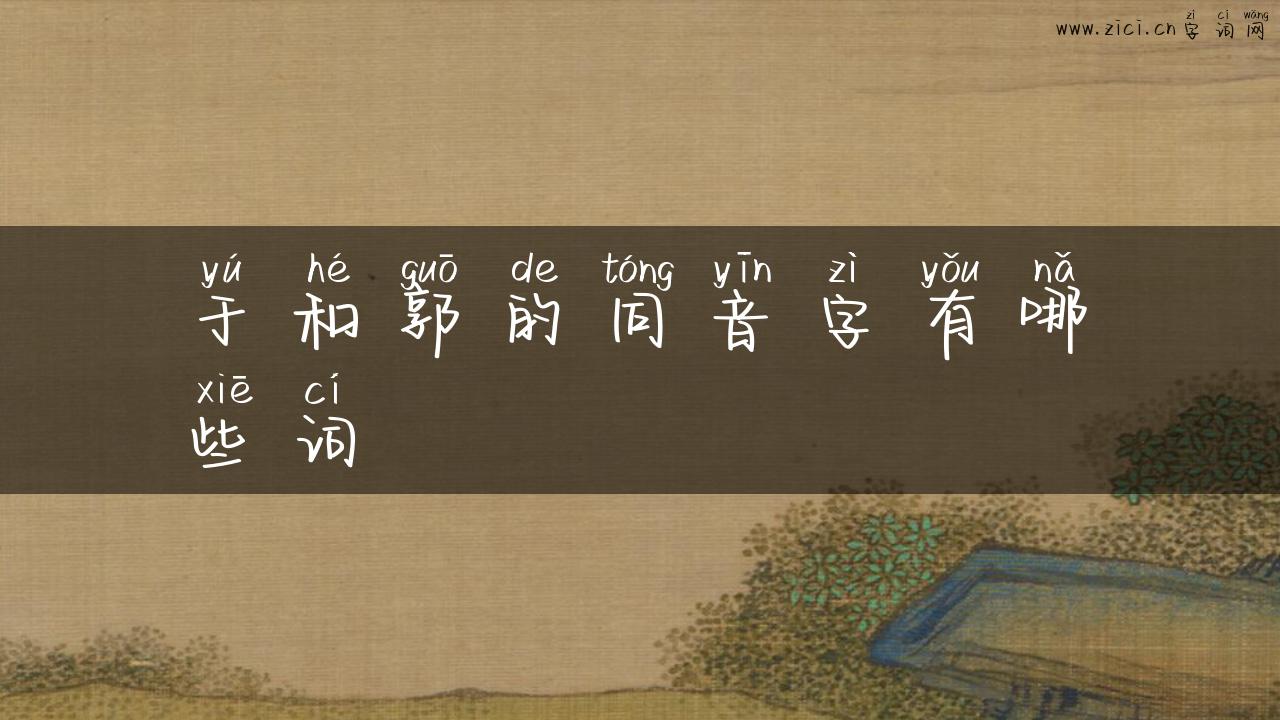 zì cí wǎng
www.zici.cn 字词网
yú hé guō de tóng yīn zì yǒu nǎ
于和郭的同音字有哪
xiē cí
些词